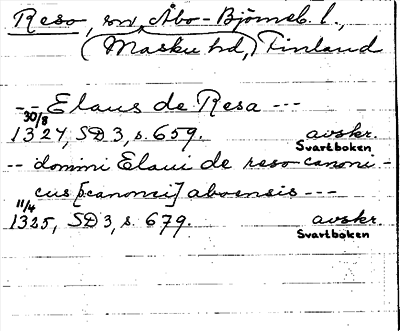 Reso, sn, Åbo-Björneb. l.,
(Masku hd,) Finland
-- Elaus de Resa ---
30/8
1324, SD 3, s. 659. avskr.
Svartboken
-- domini Elaui de reso canoni-
cus [:canonici] aboensis ---
11/4
1325, SD 3, s. 679. avskr.
Svartboken